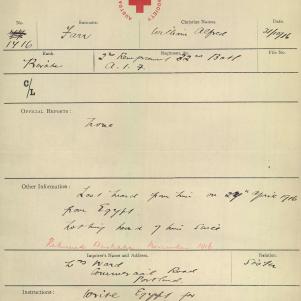 SOCIETY
No.
Surname.
Christian Names.
1416
Farr
William Alfred
Rank.
Regiment.
File No.
Private
2nd Reinforcements 32nd Batt
A.I.F.
C/L
OFFICIAL REPORTS:
None
Other Information:
Last heard from him on 29th April 1916
from Egypt
nothing heard of him since
November 1916
Inquirer's Name and Address.
Relation
Ward
Sister
Commercial Road
Portland
Instructions:
Write Egypt for